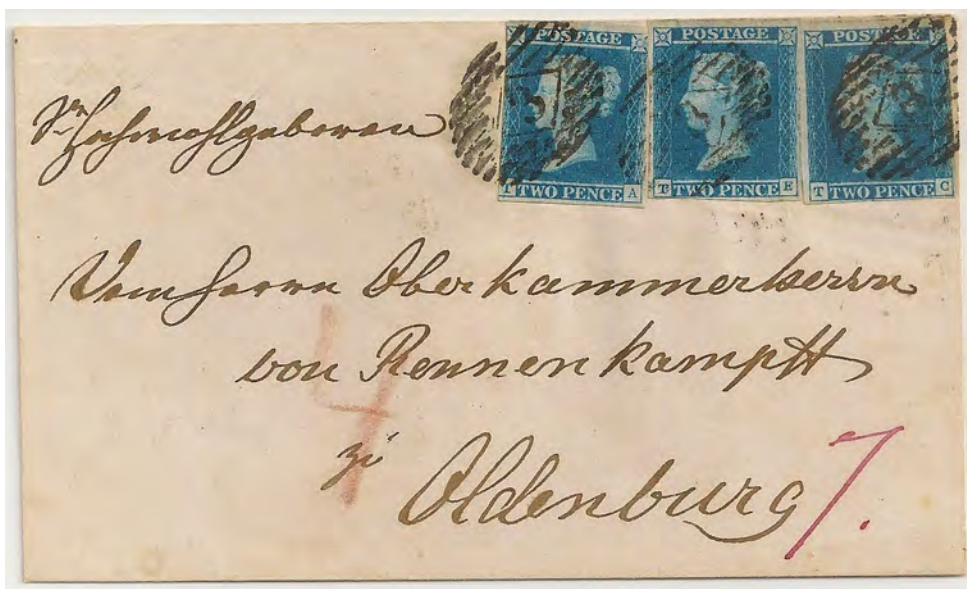 POSTAGE POSTAGE POSTAGE
TWO PENCE A T TWO PENCE E T TWO PENCE C
Sr Hochwohlgeboren
Dem Herrn Oberkammerherrn
von Rennenkampff
zu
Oldenburg
7.
4